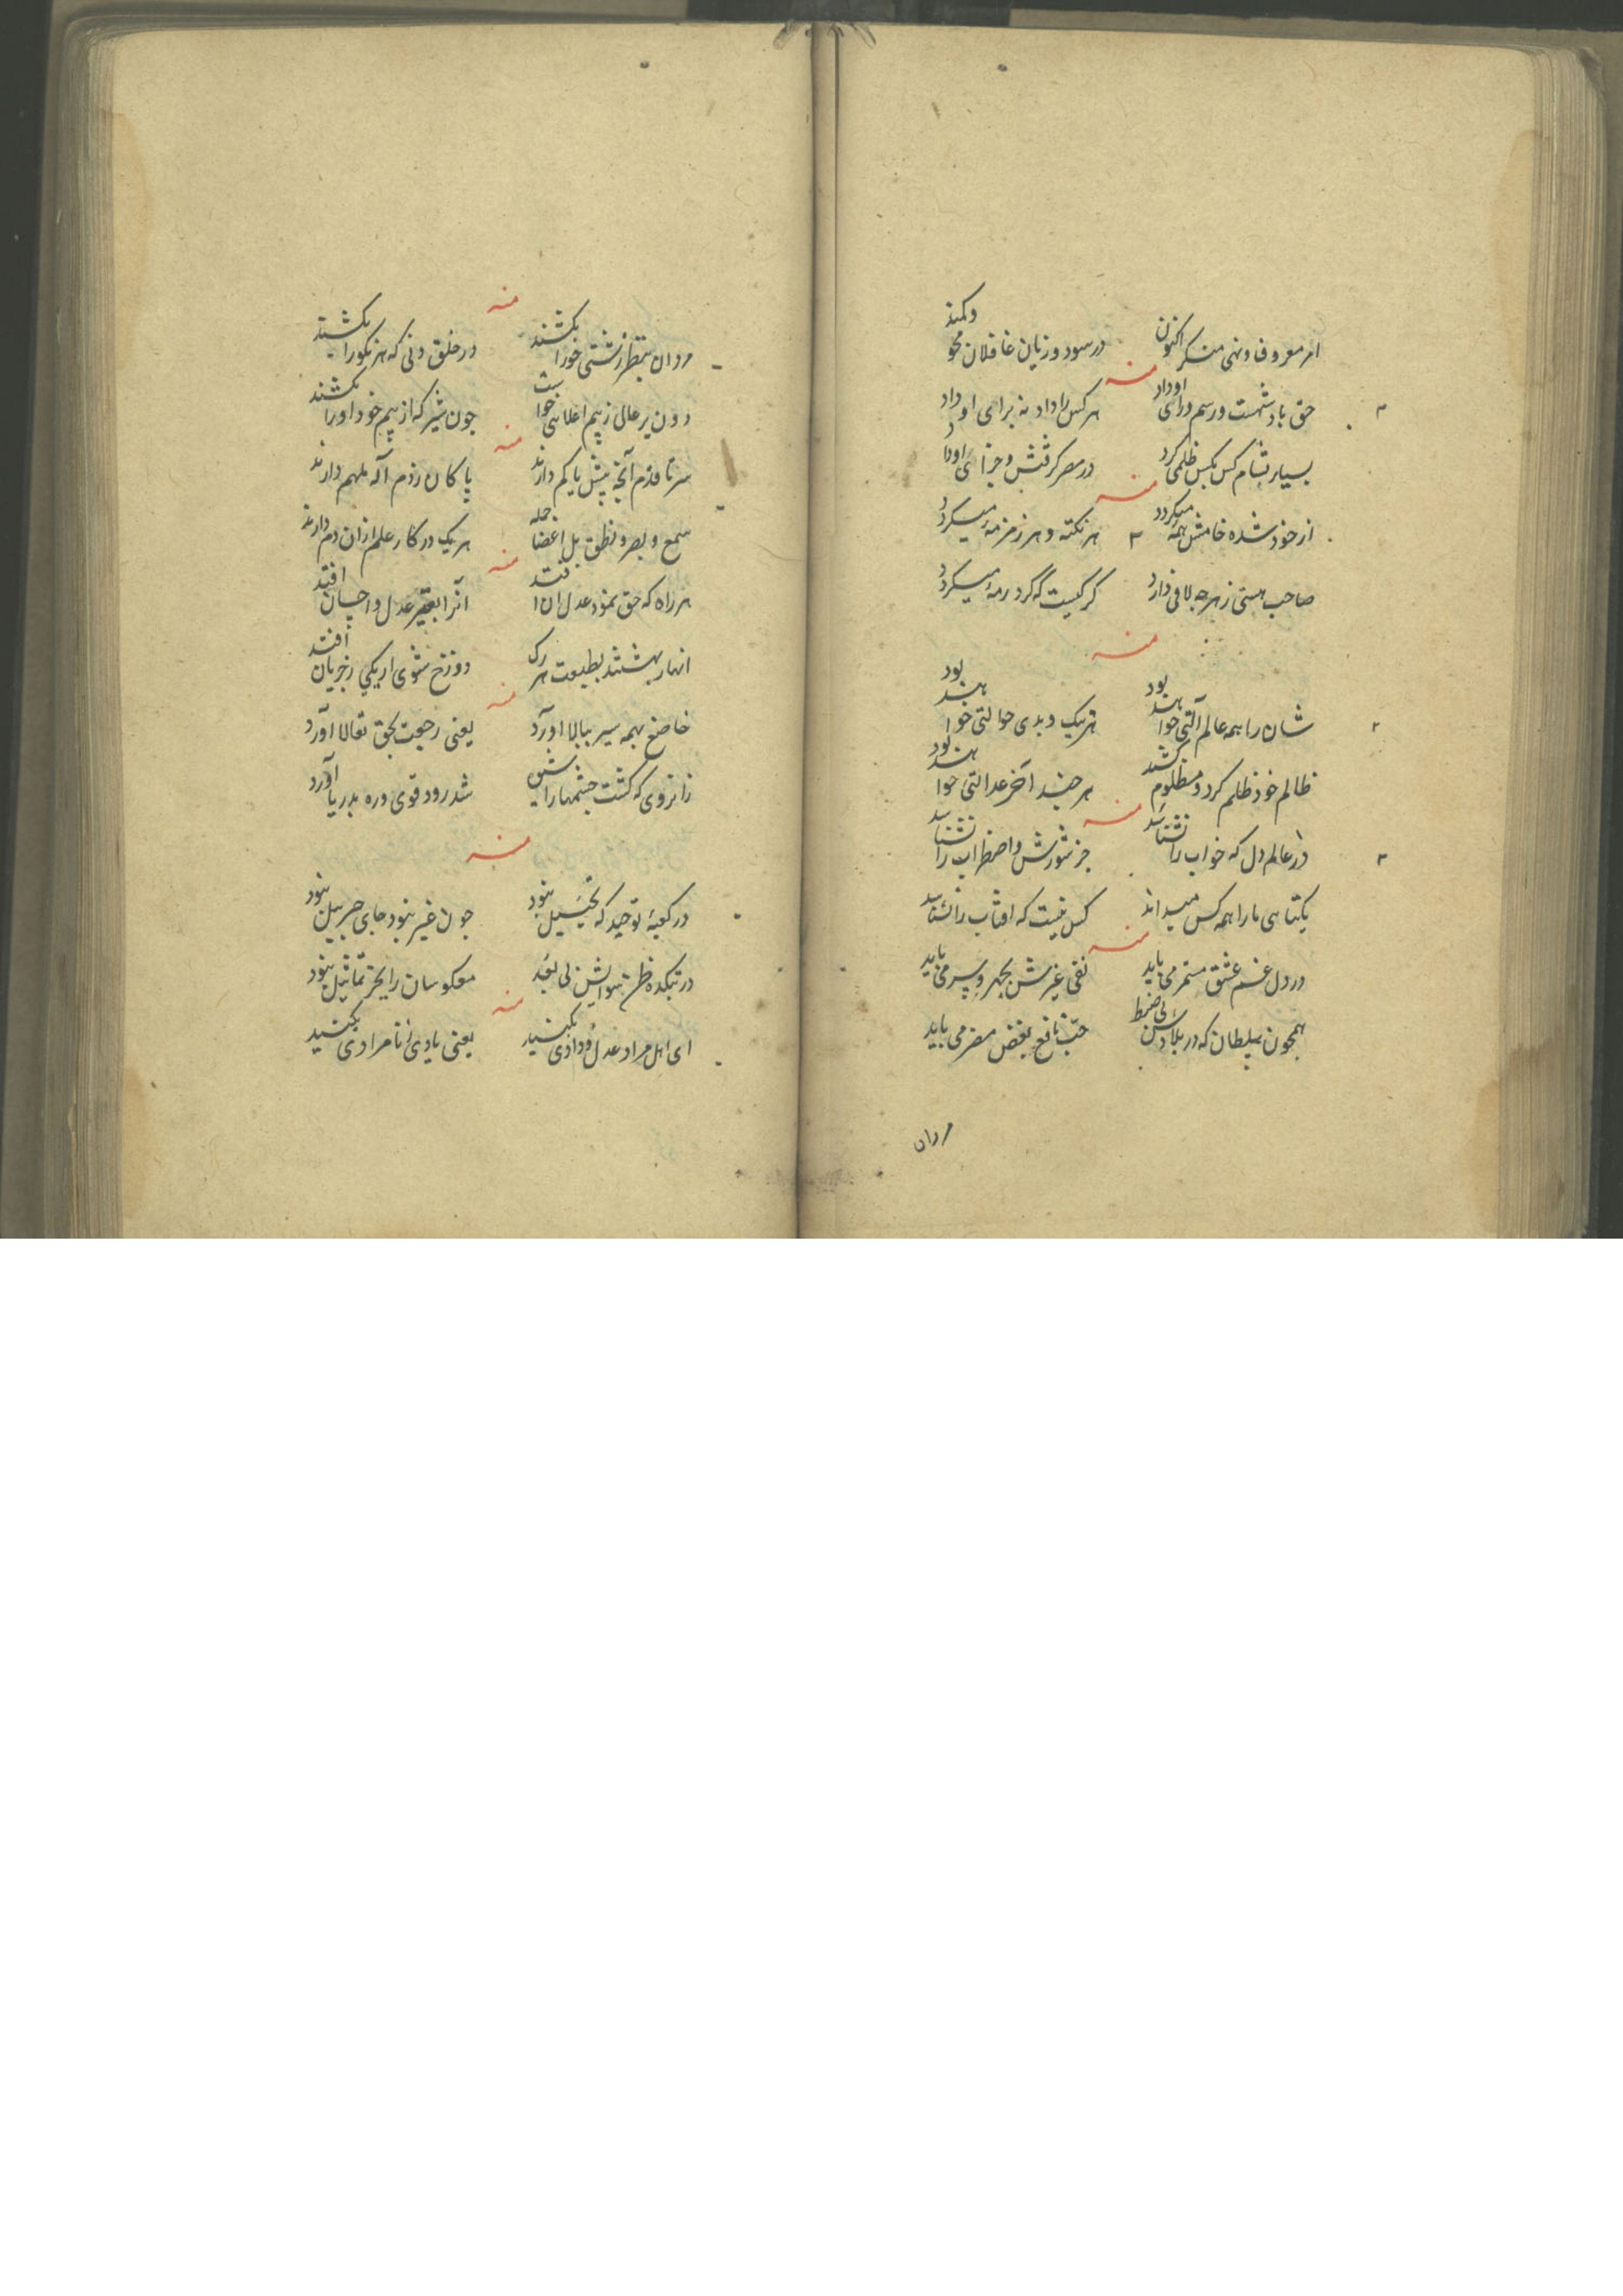 امر معروف و نهی منکر اکنون در سود و زیان غافلان محو و کمند
منه
حق بادشهست و رسم و رای او داد هر کس را داد به برای او داد
بسیار بشام کس بکس ظلمی کرد در مصر گرفتش و جزای او داد
منه
از خود شده خامش همه میکردد هر نکته و هر زمزمه میکردد
صاحب هستی ز هر چه لافی دارد گر کیست که گرد رمه میکردد
منه
شان را همه عالم آلتی خواهند بود هر نیک و بدی حوالتی خواهند بود
ظالم خود ظلم کرد و مظلوم کشید هر چند آخر عدالتی خواهند بود
منه
در عالم دل که خواب را نشناسد جز شورش و اضطراب را نشناسد
یکتاهی ما را همه کس میداند کس نیست که افتاب را نشناسد
منه
در دل غم عشق مستمر می باید نفی غیرش بجهر و سر می باید
همچون سلطان که در بلادش بی ضبط حب نافع بغض مضر می باید
مردان
منه
مردان بنظر زشتی خو را بکشند در خلق دنی که هر نکو را بکشند
دون بر عالی ز بیم اعلا هی خواست چون شیر که از بیم خود او را بکشند
منه
سر تا قدم آنچه بیش یا کم دارند پاکان ز دم آله ملهم دارند
سمع و بصر و نطق بل اعضا جمله هر یک در کار علم ازان دم دارند
منه
هر راه که حق نمود عدل ان افتد آنرا بغیر عدل و احسان افتد
انهار بهشتند بطبیعت هر رک دوزخ شوی ار یکی ز جریان افتد
منه
خاضع بهمه سیر ببالا اورد یعنی رجعت بحق تعالا اورد
زانروی که کشت چشمها را شد رود قوی و ره بدریا آورد
منه
در کعبهٔ توحید که تخییل نبود چون غیر نبود جای جبریل نبود
در بتکده ظن بتوانش بی بعد معکوسان را بجز تماثیل نبود
منه
ای اهل مراد عدل و دادی بکنید یعنی یادی ز نامرادی بکنید